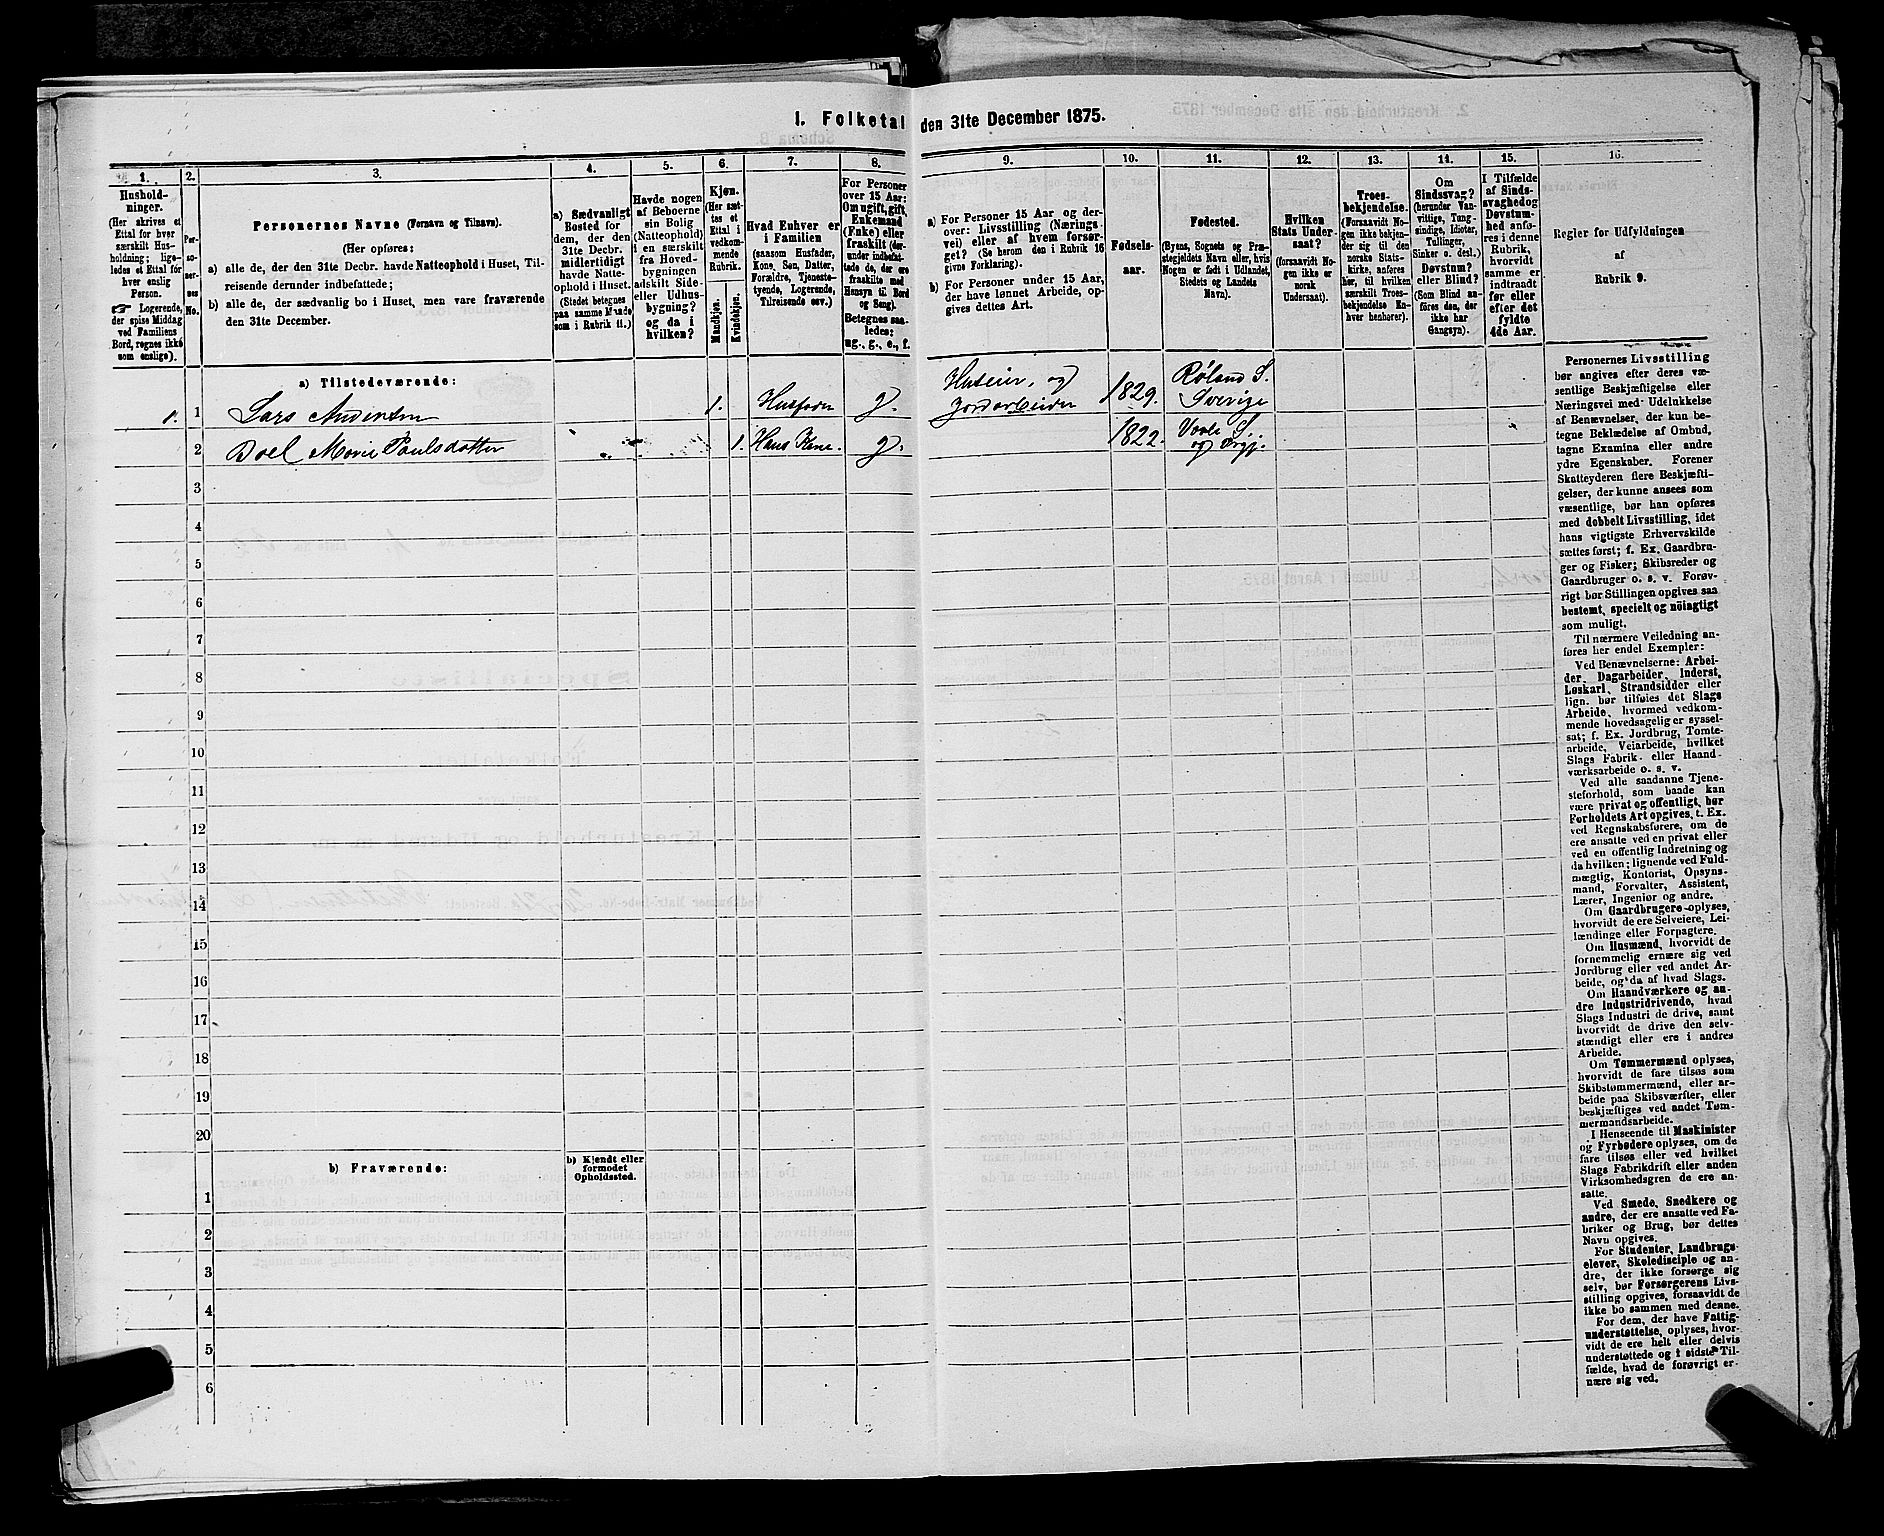 I. Folketal den 31te December 1875.
1.
Husholdninger.
(Her skrives et
Ettal for hver
særskilt Hus-
holdning; lige-
ledes et Ettal for
hver enslig
Person.
Logerende,
der spise Middag
ved Familiens
Bord, regnes ikke
som enslige).
2.
Per-
so-
ner-
nes
No.
3.
Personernes Navne (Fornavn og Tilnavn).
(Her opføres:
a) alle de, der den 31te Decbr. havde Natteophold i Huset, Til-
reisende derunder indbefattede;
b) alle de, der sædvanlig bo i Huset, men vare fraværende
den 31te December.
4.
a) Sædvanligt
Bosted for
dem, der den
31te Decbr.
midlertidigt
havde Natte-
ophold i Huset.
(Stedet betegnes
paa samme Maade
som i Rubrik 11.)
5.
Havde nogen
af Beboerne
sin Bolig
(Natteophold)
i en særskilt
fra Hoved-
bygningen
adskilt Side-
eller Udhus-
bygning?
og da i
hvilken?
6.
Kjøn.
(Her sæt-
tes et
Ettal i
vedkom-
mende
Rubrik.
Mandkjøn.
Kvindekjøn.
7.
Hvad Enhver er
i Familien
(saasom Husfader,
Kone, Søn, Datter,
Forældre, Tjeneste-
tyende, Logerende,
Tilreisende osv.)
8.
For Personer
over 15 Aar:
Om ugift, gift,
Enkemand
(Enke) eller
fraskilt (der-
under indbefat-
tede de, der ere
fraskilte med
Hensyn til Bord
og Seng).
Betegnes saa-
ledes:
ug., g., e., f.
9.
a) For Personer 15 Aar og der-
over: Livsstilling (Nærings-
vei) eller af hvem forsør-
get? (Se herom den i Rubrik 16
givne Forklaring).
b) For Personer under 15 Aar,
der have lønnet Arbeide, op-
gives dettes Art.
10.
Fødsels-
aar.
11.
Fødested.
(Byens, Sognets og Præ-
stegjeldets Navn eller, hvis
Nogen er født i Udlandet,
Stedets og Landets
Navn).
12.
Hvilken
Stats Under-
saat?
(forsaavidt No-
gen ikke er
norsk
Undersaat).
13.
Troes-
bekjendelse.
(Forsaavidt No-
gen ikke bekjen-
der sig til den
norske Stats-
kirke, anføres
her, til hvilken
særskilt Troes-
bekjendelse En-
hver henhører).
14.
Om
Sindssvag?
(herunder Van-
vittige, Tung-
sindige, Idioter,
Tullinger,
Sinker o. desl.)
Døvstum?
eller Blind?
(Som Blind an-
føres den, der
ikke har
Gangsyn).
15.
I Tilfælde
af Sinds-
svaghed og
Døvstum-
hed anfø-
res i denne
Rubrik,
hvorvidt
samme er
indtraadt
før eller
efter det
fyldte
4de Aar.
16.
Regler for Udfyldningen
af
Rubrik 9.
a) Tilstedeværende:
1. 1 Lars Andersen 1. Husfader g. Huseier, og Jordarbeider 1829. Røland S. Sverige
2 Boel Marie Paulsdatter 1. Hans Kone. g. 1822. Vaale S. og Prgj.
3
4
5
6
7
8
9
10
11
12
13
14
15
16
17
18
19
20
b) Fraværende:
b) Kjendt eller
formodet
Opholdssted.
1
2
3
4
5
6
Personernes Livsstilling
bør angives efter deres væ-
sentlige Beskjæftigelse eller
Næringsvei med Udelukkelse
af Benævnelser, der kun be-
tegne Beklædelse af Ombud,
tagne Examina eller andre
ydre Egenskaber. Forener
Skatteyderen flere Beskjæfti-
gelser, der kunne ansees som
væsentlige, bør han opføres
med dobbelt Livsstilling, idet
hans vigtigste Erhvervskilde
sættes først; f. Ex. Gaardbru-
ger og Fisker; Skibsreder og
Gaardbruger o. s. v. Forøv-
rigt bør Stillingen opgives saa
bestemt, specielt og nöiagtigt
som muligt.
Til nærmere Veiledning an-
føres her endel Exempler:
Ved Benævnelserne: Arbei-
der, Dagarbeider, Inderst,
Løskarl, Strandsidder eller
lign. bør tilføies det Slags
Arbeide, hvormed vedkom-
mende hovedsagelig er syssel-
sat; f. Ex. Jordbrug, Tomte-
arbeide, Veiarbeide, hvilket
Slags Fabrik- eller Haand-
værksarbeide o. s. v.
Ved alle saadanne Tjene-
steforhold, som baade kan
være privat og offentligt, bør
Forholdets Art opgives, t. Ex.
ved Regnskabsførere, om de
ere ansatte ved en privat eller
ved en offentlig Indretning og
da hvilken; lignende ved Fuld-
mægtig, Kontorist, Opsyns-
mand, Forvalter, Assistent,
Lærer, Ingeniør og andre.
Om Gaardbrugere oplyses,
hvorvidt de ere Selveiere, Lei-
lændinge eller Forpagtere.
Om Husmænd, hvorvidt de
fornemmelig ernære sig ved
Jordbrug eller ved andet Ar-
beide, og da af hvad Slags.
Om Haandværkere og an-
dre Industridrivende, hvad
Slags Industri de drive, samt
hvorvidt de drive den selv-
stændigt eller ere i andres
Arbeide.
Om Tømmermænd oplyses,
hvorvidt de fare tilsøs som
Skibstømmermænd, eller ar-
beide paa Skibsværfter, eller
beskjæftiges ved andet Tøm-
mermandsarbeide.
I Henseende til Maskinister
og Fyrbødere oplyses, om de
fare tilsøs eller ved hvilket
Slags Fabrikdrift eller anden
Virksomhedsgren de ere an-
satte.
Ved Smede, Snedkere og
andre, der ere ansatte ved Fa-
briker og Brug, bør dettes
Navn opgives.
For Studenter, Landbrugs-
elever, Skoledisciple og an-
dre, der ikke forsørge sig
selv, bør Forsørgerens Livs-
stilling opgives, forsaavidt de
ikke bo sammen med denne.
For dem, der have Fattig-
understøttelse, oplyses, hvor-
vidt de ere helt eller delvis
understøttede og i sidste Til-
fælde, hvad de forøvrigt er-
nære sig ved.